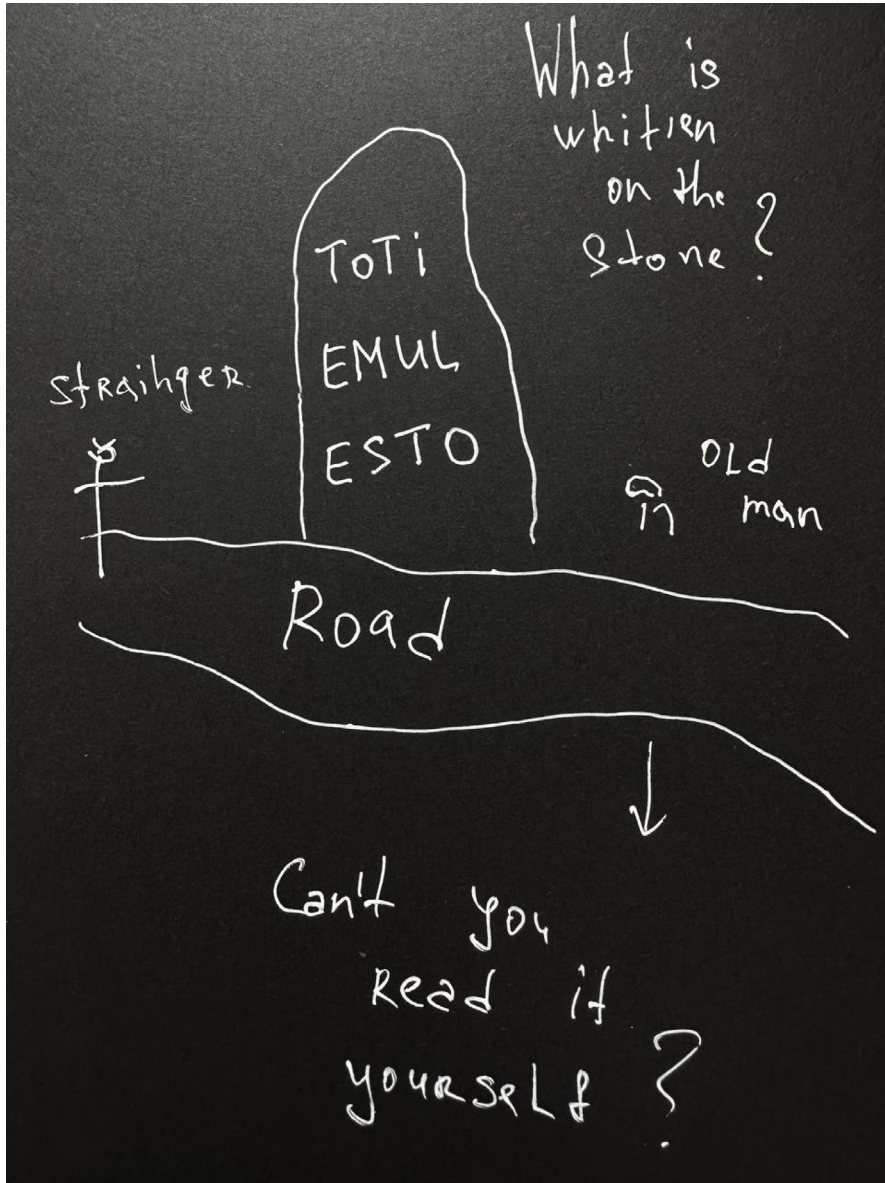 What is
whitien
on the
Stone?
ToTi
EMUL
ESTO
Straihger
OLd
man
Road
Can't you
Read it
yourself?